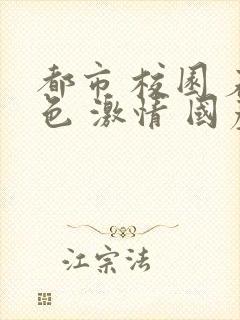 都市 校园
色 激情 国
江宗法